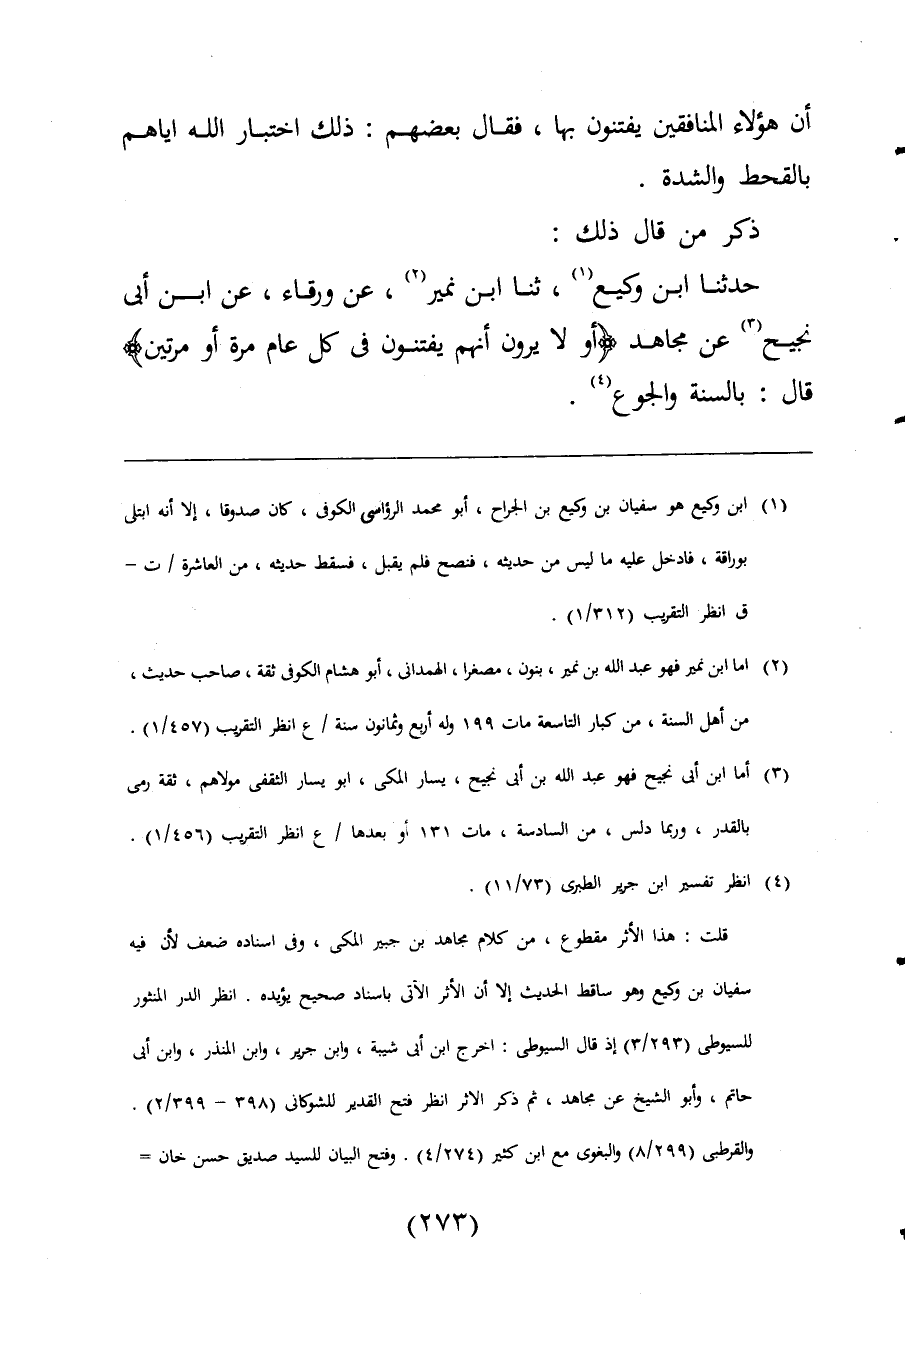 أن هؤلاء المنافقين يفتنون بها ، فقال بعضهم : ذلك اختبار الله اياهم
بالقحط والشدة .
ذكر من قال ذلك :
حدثنا ابن وكيع(١) ، ثنا ابن نمير(٢) ، عن ورقاء ، عن ابن أبى
نجيح(٣) عن مجاهد ﴿أو لا يرون أنهم يفتنون فى كل عام مرة أو مرتين﴾
قال : بالسنة والجوع(٤) .
(١) ابن وكيع هو سفيان بن وكيع بن الجراح ، أبو محمد الرؤاسي الكوفى ، كان صدوقا ، إلا أنه ابتلى
بوراقة ، فادخل عليه ما ليس من حديثه ، فنصح فلم يقبل ، فسقط حديثه ، من العاشرة / ت –
ق انظر التقريب (١/٣١٢) .
(٢) اما ابن نمير فهو عبد الله بن نمير ، بنون ، مصغرا ، الهمدانى ، أبو هشام الكوفى ثقة ، صاحب حديث ،
من أهل السنة ، من كبار التاسعة مات ١٩٩ وله أربع وثمانون سنة / ع انظر التقريب (١/٤٥٧) .
(٣) أما ابن أبى نجيح فهو عبد الله بن أبى نجيح ، يسار المكى ، ابو يسار الثقفى مولاهم ، ثقة رمى
بالقدر ، وربما دلس ، من السادسة ، مات ١٣١ أو بعدها / ع انظر التقريب (١/٤٥٦) .
(٤) انظر تفسير ابن جرير الطبرى (١١/٧٣) .
قلت : هذا الأثر مقطوع ، من كلام مجاهد بن جبير المكى ، وفى اسناده ضعف لأن فيه
سفيان بن وكيع وهو ساقط الحديث إلا أن الأثر الآتى باسناد صحيح يؤيده . انظر الدر المنثور
للسيوطى (٣/٢٩٣) إذ قال السيوطى : اخرج ابن أبى شيبة ، وابن جرير ، وابن المنذر ، وابن أبى
حاتم ، وأبو الشيخ عن مجاهد ، ثم ذكر الاثر انظر فتح القدير للشوكانى (٣٩٨ – ٢/٣٩٩) .
والقرطبى (٨/٢٩٩) والبغوى مع ابن كثير (٤/٢٧٤) . وفتح البيان للسيد صديق حسن خان =
(٢٧٣)